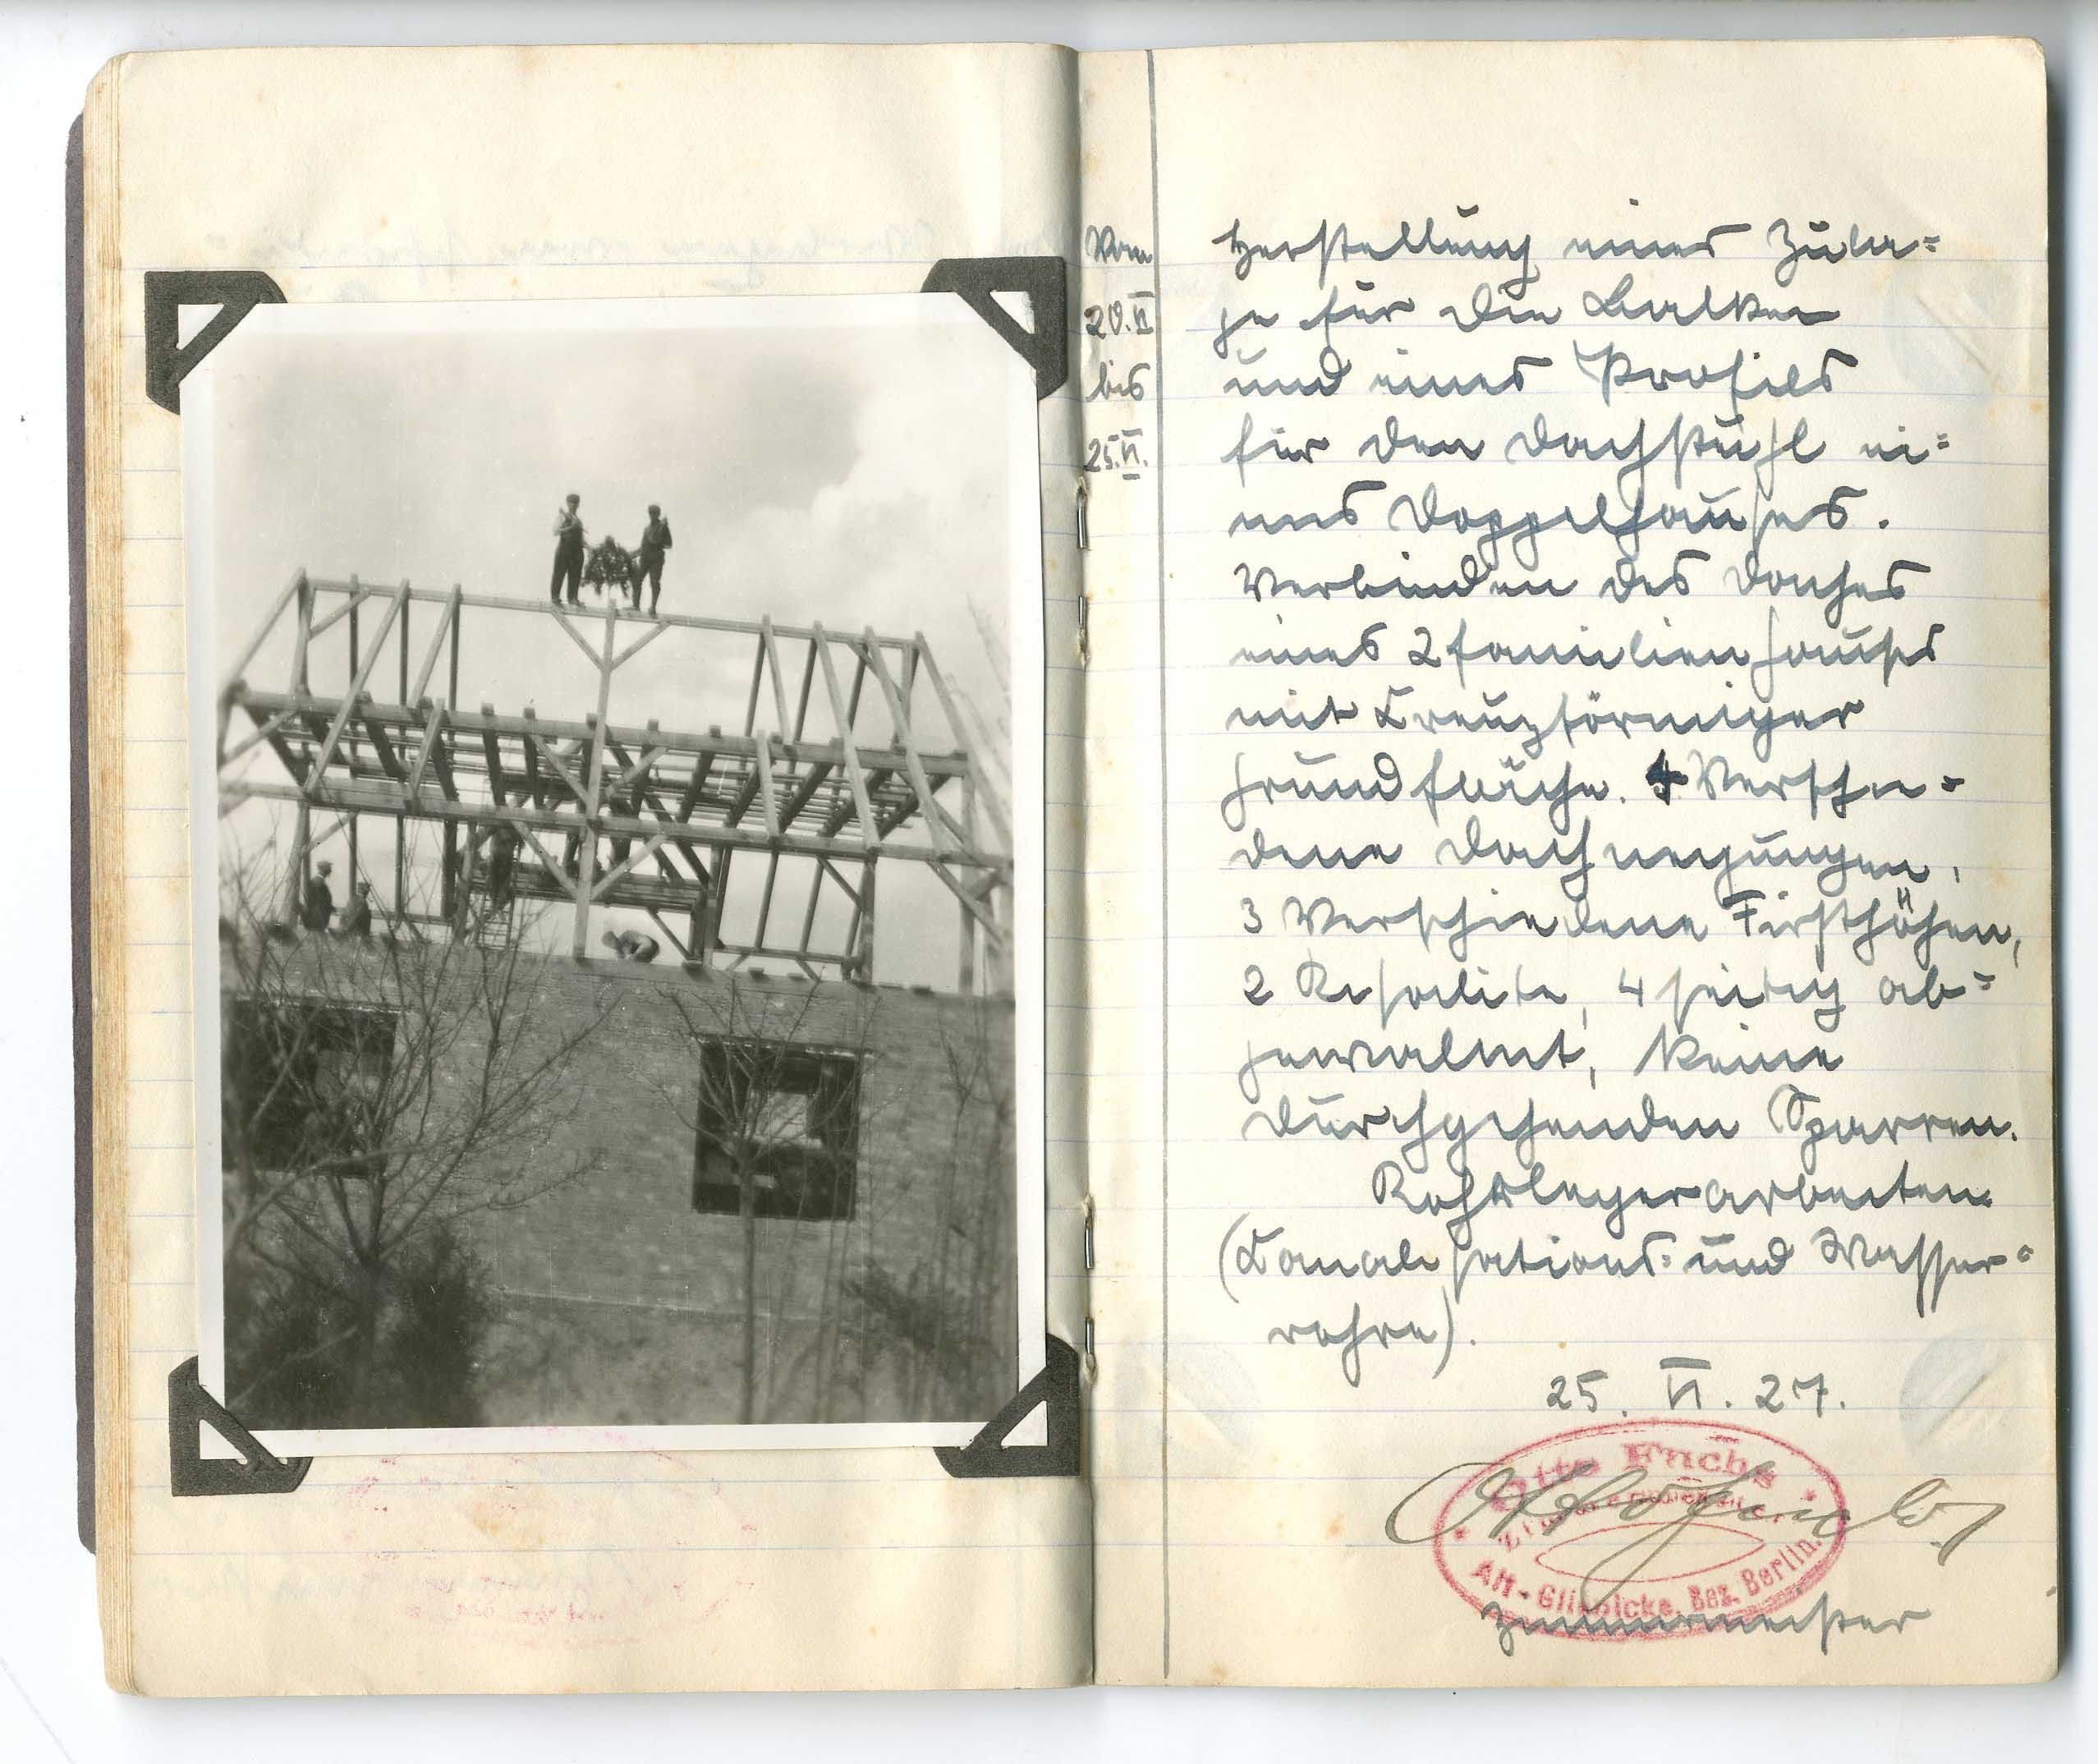 Vom
20.VI
bis
25.VI.
Herstellung eines Zula=
ge für die Balken
und eines Profils
für den Dachstuhl ei=
nes Doppelhauses.
Verbinden des Daches
eines 2familienhauses
mit Kreuzförmiger
Grundfläche. 4 Verschie=
dene Dachneigungen,
3 Verschiedene Firsthöhen,
2 Resalite, 4seitig ab=
gewalmt, keine
durchgehenden Sparren.
Rohrlegerarbeiten
(Kanalisations= und Wasser=
rohre).
25. VI. 27.
Otto Fuchs
Alt-Glienicke, Bez. Berlin.
Zimmermeister